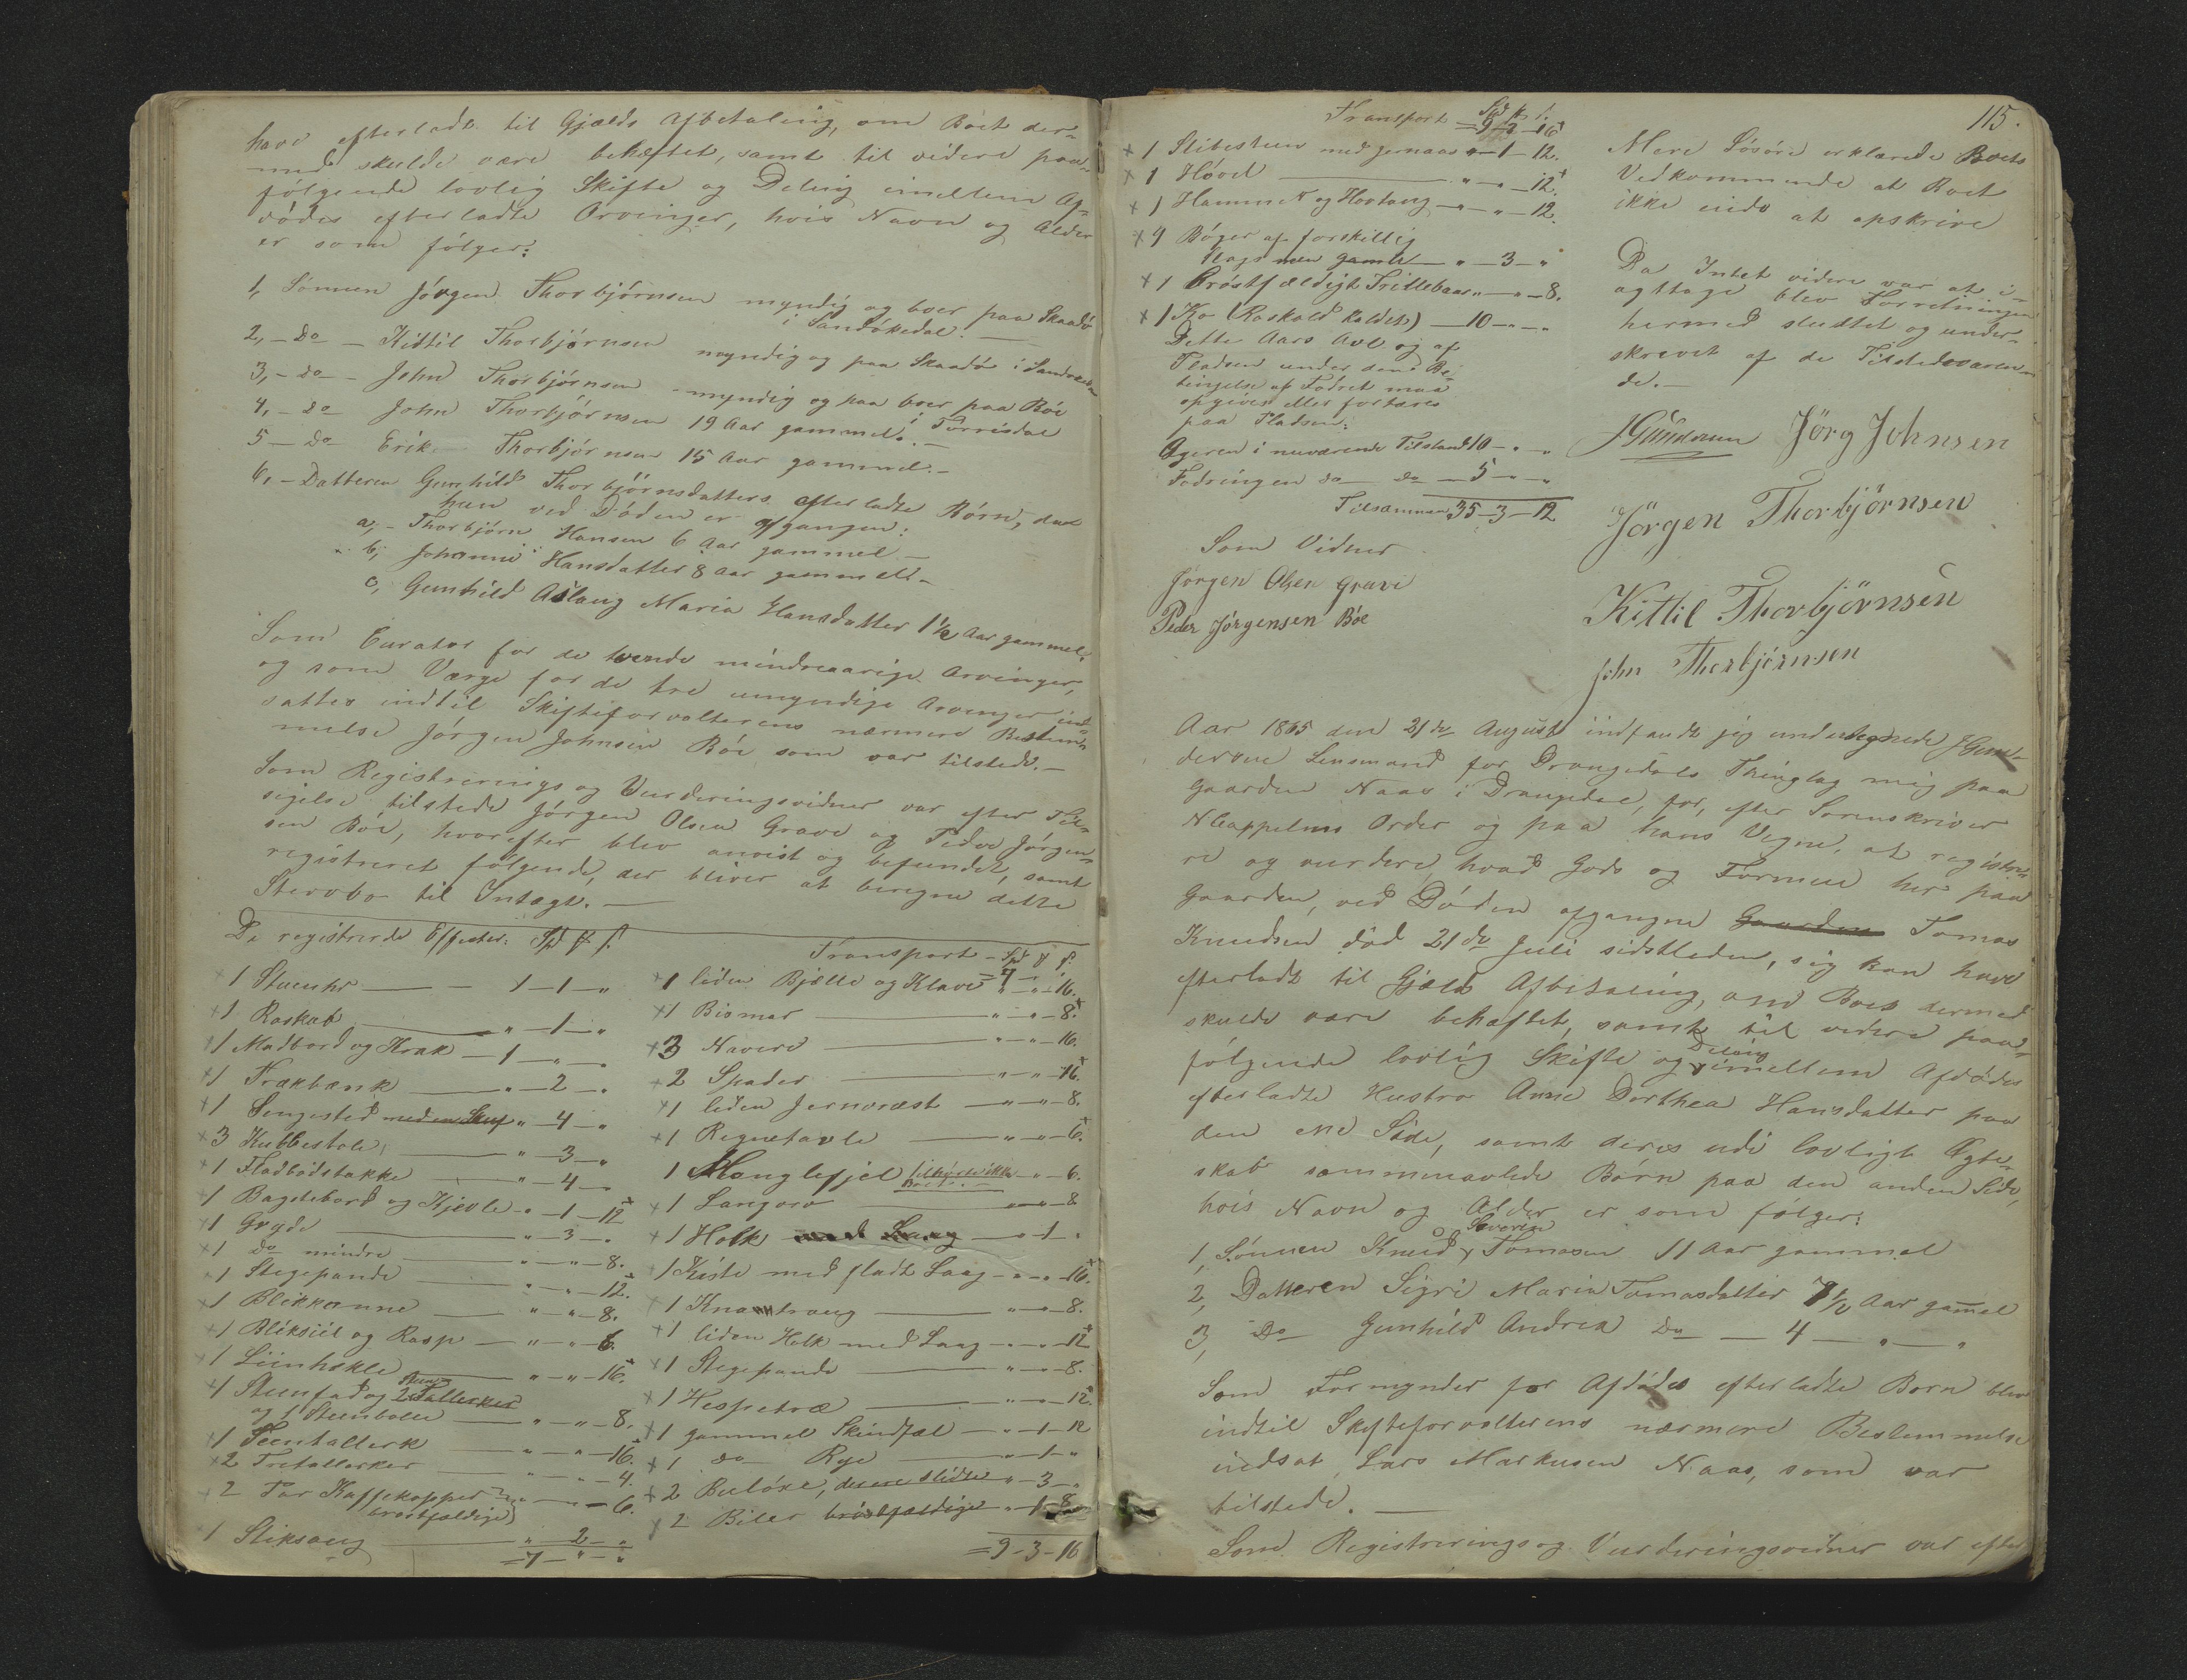 have efterladt til Gjælds Afbetaling, om Boet der-
med skulde være behæftet, samt til videre paa-
følgende lovlig Skifte og Deling imellem Af-
dödes efterladte Arvinger, hvis Navn og Alder
er som følger:
1, Sönnen Jörgen Thorbjörnsen myndig og boer paa Skaadö
i Sandökedal.
2, - Do - Kittil Thorbjörnsen myndig og paa Skaadö i Sandökedal
3, - do - John Thorbjörnsen myndig og boer paa Böe
i Torrisdal
4, - do John Thorbjörnsen 19 Aar gammel. -
5 - do Erik Thorbjörnsen 15 Aar gammel. -
6, - Datteren Gunhild Thorbjörnsdatters efterladte Börn, da
hun ved Döden er afgangen:
a, - Thorbjörn Hansen 6 Aar gammel -
b, Johanne Hansdatter 8 aar gammel -
c, Gunhild Aslaug Maria Hansdatter 1½ Aar gammel.
Som Curator for de tvende mindreaarige Arvinger,
og som Værge for de tre umyndige Arvinger ind-
sattes indtil Skifteforvalterens nærmere Bestem-
melse Jörgen Johnsen Böe som var tilstede. -
Som Registrerings og Vurderingsvidner var efter Til-
sigelse tilstede Jörgen Olsen Grave og Peder Jörgen-
sen Böe, hvorefter blev anvist og befundet, samt
registreret følgende, der bliver at beregne dette
Stervbo til Intægt. -
De registrerede Effecter: Spd ß
1 Stueuhr - 1 - 1 - "
1 Roskab " - 1 - "
1 Madbord og Krak - 1 - " - "
1 Trækbænk " - 2 - "
1 Sengested med en Skuf " - 4 - "
3 Kubbestole " - 3 - "
1 Fladbödstakke " - 4 - "
1 Bagetebord og Kjevle " - 1 - 12
1 Gryde " - 3 - "
1 do mindre " - " - 8.
1 Stegepande " - " - 12.
1 Blikkanne " - " - 8.
1 Bliksiil og Rasp " - " - 6.
1 Liinhekle " - " - 16.
1 Steenfad og 2 Steen Tallerker
og 1 Steenbolle " - " - 8.
1 Teentallerk " - " - 16.
2 Tretallerker " - " - 4.
2 Par Kaffekopper
brøstfældige " - " - 6.
1 Stiksaug " 2 - "
= 7 - " - "
Transport - Spd ß
= 7 - " - "
1 liden Bjælle og Klave " - " - 16.
1 Bismar " - " - 8.
3 Navere " - " - 16.
2 Spader " - " - 16.
1 liden Jernorest " - " - 8.
1 Regnetavle " - " - 6.
1 Manglefjel tilhörer ikke Boet. - " - 6.
1 Langorv " - " - 8
1 Holk med Laag " - 1 - "
1 Kiste med fladt Laag " - " - 16.
1 Knatraug " - " - 8.
1 liden Holk med Laag " - " - 12
1 Stegepande " - " - 8.
1 Hespetræ " - " - 12.
1 gammel Skindfæl " - 1 - 12
1 do Rye " - 1 - "
2 Buløxe, desere slidte " - 3 - "
2 Biler brøstfældige " - 1 - 8
= 9 - 3 - 16
115.
Transport Spd
= 9 - 3 - 16
1 Slibesteen med Jernaas " - 1 - 12.
1 Hövel " - " - 12.
1 Hammer og Hovtang " - " - 12.
4 Böger af forskillig
Slags men gamle " - 3 - "
1 Bröstfældigt Trillebaar " - " - 8.
1 Ko (Roskald kaldet) - 10 - " - "
Dette Aars Avl og af
Pladsen under den Be-
tingelse at Fodret maa
opgives eller fortæres
paa Pladsen:
Ageren i nuværende Tilstand 10 - " - "
Fodringen do do - 5 - " - "
Tilsammen 35 - 3 - 12
Som Vidner
Jörgen Olsen Gravi
Peder Jörgensen Böe
Mere Lösöre erklærede Boets
Vedkommende at Boet
ikke eiede at opskrive
Da Intet videre var at i-
agttage blev Forretningen
hermed sluttet og under-
skrevet af de Tilstedeværen-
de. -
JGundersen Jörg Johnsen
Jörgen Thorbjörnsen
Kittil Thorbjörnsen
John Thorbjörnsen
Aar 1865 den 21de August indfandt jeg undertegnede JGun-
dersen Lensmand for Drangedals Thinglag mig paa
Gaarden Naas i Drangedal, for, efter Sorenskriver
NCappelens Order og paa hans Vegne, at registre-
re og vurdere, hvad Gods og Formue her paa
Gaarden, ved Döden afgangne Gaarden Tomas
Knudsen död 21de Juli sidstleden, sig kan have
efterladt til Gjæld Afbetaling, om Boet dermed
skulde være behæftet, samt til videre paa-
følgende lovlig Skifte og Deling imellem Afdødes
efterladte Hustro Anne Dorthea Hansdatter paa
den ene Side, samt deres udi lovligt Ægte-
skab sammenavlede Börn paa den anden Side,
hvis Navn og Alder er som følger:
1, Sönnen Knud Severin Tomasen 11 Aar gammel
2, Datteren Sigri Maria Tomasdatter 7½ Aar gammel
3, Do Gunhild Andrea Do - 4 - " - "
Som Formynder for Afdödes efterladte Børn blev
indtil Skifteforvalterens nærmere Bestemmelse
indsat Lars Markusen Naas, som var
tilstede. -
Som Registrerings og Vurderingsvidner var efter